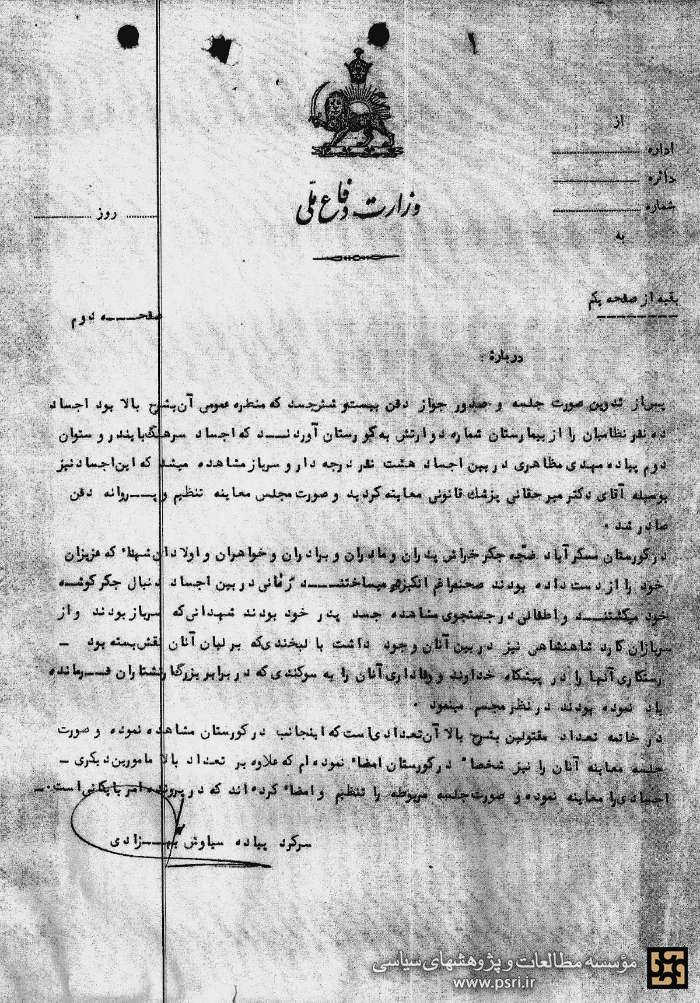 ۱
از
اداره
دائره
شماره
به
وزارت دفاع ملی
روز
بقیه از صفحه یکم
صفحـــه دوم
درباره:
پس‌از تدوین صورت جلسه و صدور جواز دفن بیست‌و شش‌جسد که منظره عمومی آن‌بشرح بالا بود اجساد
ده نفر نظامیان را از بیمارستان شماره دو ارتش به‌گورستان آوردنـــد که اجساد سرهنگ و ستوان
دوم پیاده مهدی مظاهری در بین اجساد هشت نفر درجه دار و سرباز مشاهده میشد که این‌اجساد نیز
بوسیله آقای دکتر میرحقانی پزشک قانونی معاینه گردید و صورت مجلس معاینه تنظیم و پـــروانه دفن
صادر شد ۰
در گورستان مسگرآباد ضجّه جگرخراش پدران و مادران و برادران و خواهران و اولادان شهداء که عزیزان
خود را از دست داده بودند صحنه‌را غم انگیزتر میساختنـــد زمانی در بین اجساد دنبال جگرگوشـه
خود میگشتنـــد و اطفالی در جستجوی مشاهده جسد پدر خود بودند شهدائی‌که سرباز بودند و از
سربازان گارد شاهنشاهی نیز در بین آنان وجود داشت با لبخندی‌که بر لبان آنان نقش‌بسته بود ــ
رستگاری آنها را در پیشگاه خداوند و وفاداری‌آنان را به سوگندی‌که در برابر فـــرمانده
یاد نموده بودند در نظر مجسم مینمود ۰
در خاتمه تعداد مقتولین بشرح بالا آن‌تعدادی‌است که اینجانب در گورستان مشاهده نموده و صورت
جلسه معاینه آنان را نیز شخصاً در گورستان امضاء نموده‌ام که علاوه بر تعداد بالا مامورین دیگری ــ
اجسادی‌را معاینه نموده و صورت‌جلسه مربوطه را تنظیم و امضاء کرده‌اند که در پرونده امر بایگانی‌است۰ــ
سرگرد پیاده سیاوش بهـــزادی
مؤسسه مطالعات و پژوهشهای سیاسی
www.psri.ir